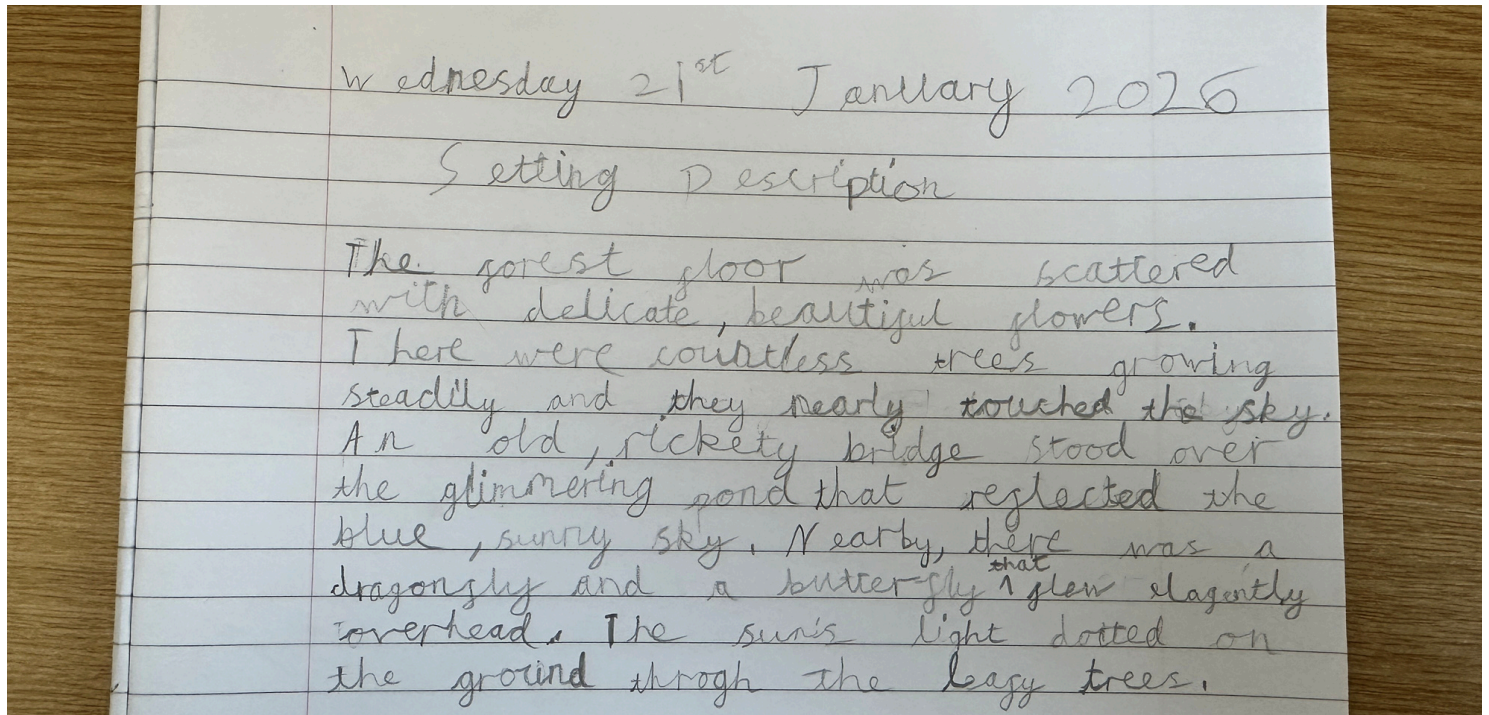 Wednesday 21st January 2026
Setting Description
The forest floor was scattered
with delicate, beautiful flowers.
There were countless trees growing
steadily and they nearly touched the sky.
An old, rickety bridge stood over
the glimmering pond that reflected the
blue, sunny sky. Nearby, there was a
dragonfly and a butterfly ^that flew elagently
overhead. The sun's light dotted on
the ground throgh the leafy trees.